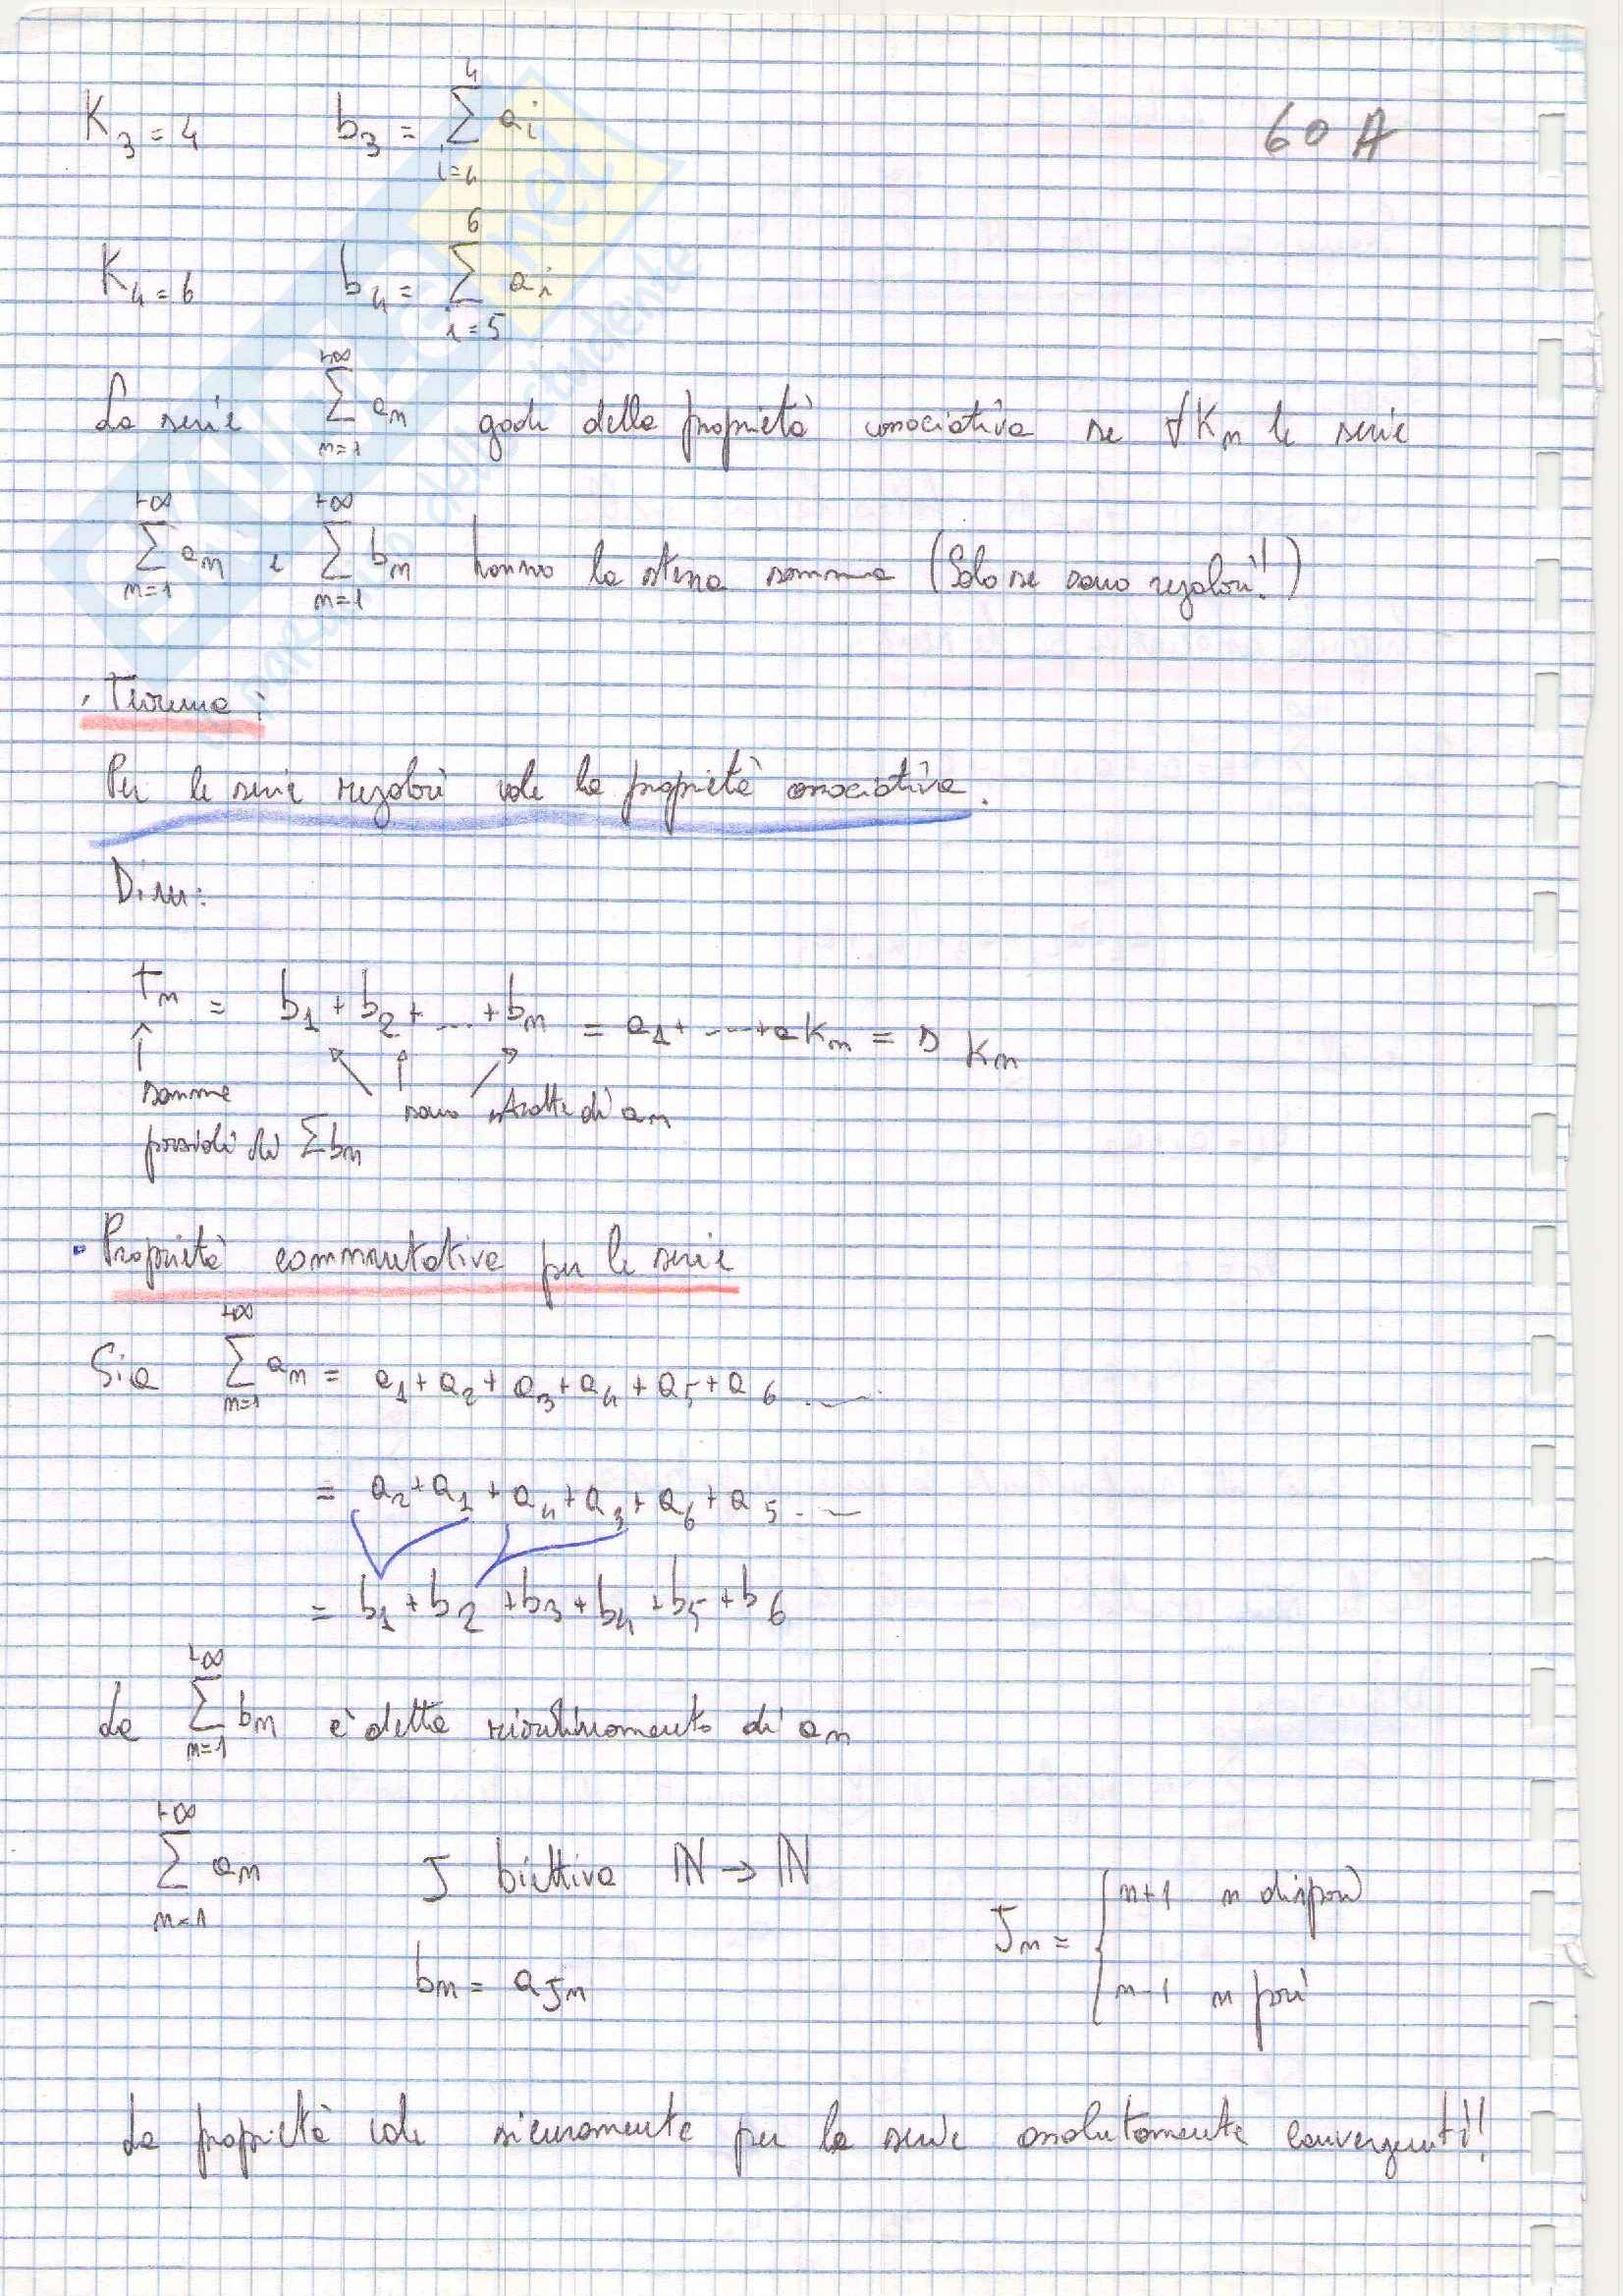 60 A
K₃ = 4 b₃ = ∑_{i=4}^{4} aᵢ
K₄ = 6 b₄ = ∑_{i=5}^{6} aᵢ
La serie ∑_{n=1}^{+∞} aₙ gode della proprietà associativa se ∀Kₙ le serie
∑_{n=1}^{+∞} aₙ e ∑_{n=1}^{+∞} bₙ hanno la stessa somma (Solo se sono regolari!!)
· Teorema:
Per le serie regolari vale la proprietà associativa.
Dim:
tₙ = b₁ + b₂ + ... + bₙ = a₁ + ... + aKₙ = s Kₙ
somme sono di aₙ
parziali di ∑bₙ
· Proprietà commutativa per le serie
Sia ∑_{n=1}^{+∞} aₙ = a₁ + a₂ + a₃ + a₄ + a₅ + a₆ ...
= a₂ + a₁ + a₄ + a₃ + a₆ + a₅ ...
= b₁ + b₂ + b₃ + b₄ + b₅ + b₆
La ∑_{n=1}^{+∞} bₙ è detta riordinamento di aₙ
∑_{n=1}^{+∞} aₙ J biettiva ℕ → ℕ
Jₙ = { n+1 n dispari
bₙ = aJₙ
n-1 n pari
La proprietà vale sicuramente per le serie assolutamente convergenti!!